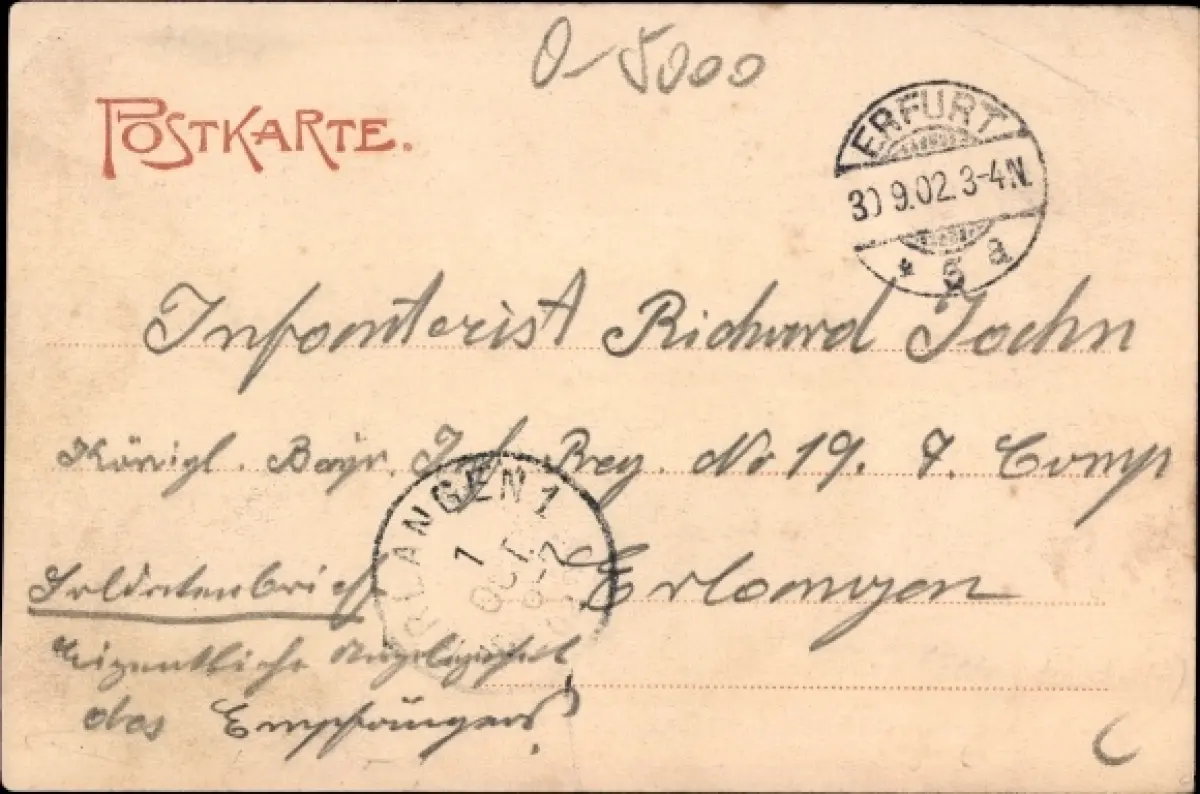 0-5000
POSTKARTE.
ERFURT
30 9.02. 3-4 N.
* 5 a
Infanterist Richard Jochn
Königl. Bayr. Inf. Reg. No 19. 7. Comp
ERLANGEN 1
1
OCT
Erlangen
Soldatenbrief
Eigentliche Angelegenheit
des Empfängers